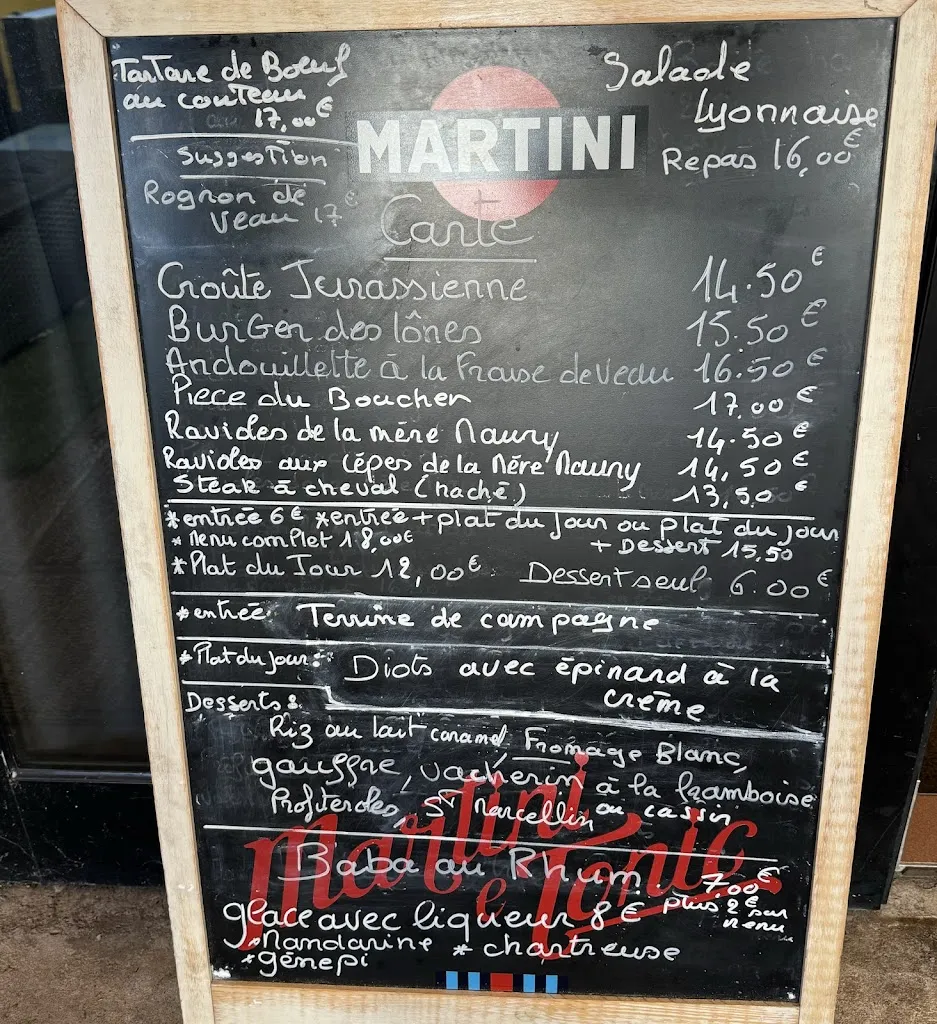 Tartare de Boeuf
au couteau
17,00€
Suggestion
Rognon de
veau 17€
MARTINI
Salade
Lyonnaise
Repas 16,00€
Carte
Croûte Jurassienne 14.50€
BurGer des lônes 15.50€
Andouillette à la Fraise de veau 16.50€
Pièce du Boucher 17.00€
Ravioles de la mère Maury 14.50€
Ravioles aux Cèpes de la Mère Maury 14,50€
Steak à cheval (haché) 13,50€
*entrée 6€ *entrée + plat du jour ou plat du jour
* Menu complet 18,00€ + Dessert 15,50
*Plat du Jour 12,00€. Dessert seul 6.00€
*entrée: Terrine de campagne
*Plat du jour: Diots avec épinard à la
crème
Desserts:
Riz au lait caramel, Fromage Blanc,
gauffre, vacherin à la framboise
Profiteroles, St Marcellin ou cassis
Martini
e Tonic
Baba au Rhum. 7.00€
plus 2€ sur
menu
glace avec liqueur 8€
*Mandarine * chartreuse
*génepi